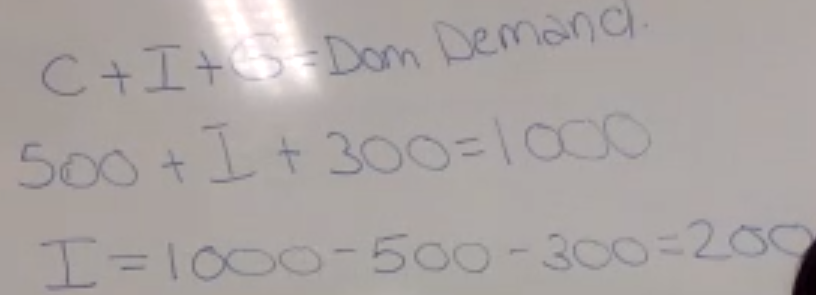 C + I + G = Dom Demand.
500 + I + 300 = 1000
I = 1000 - 500 - 300 = 200